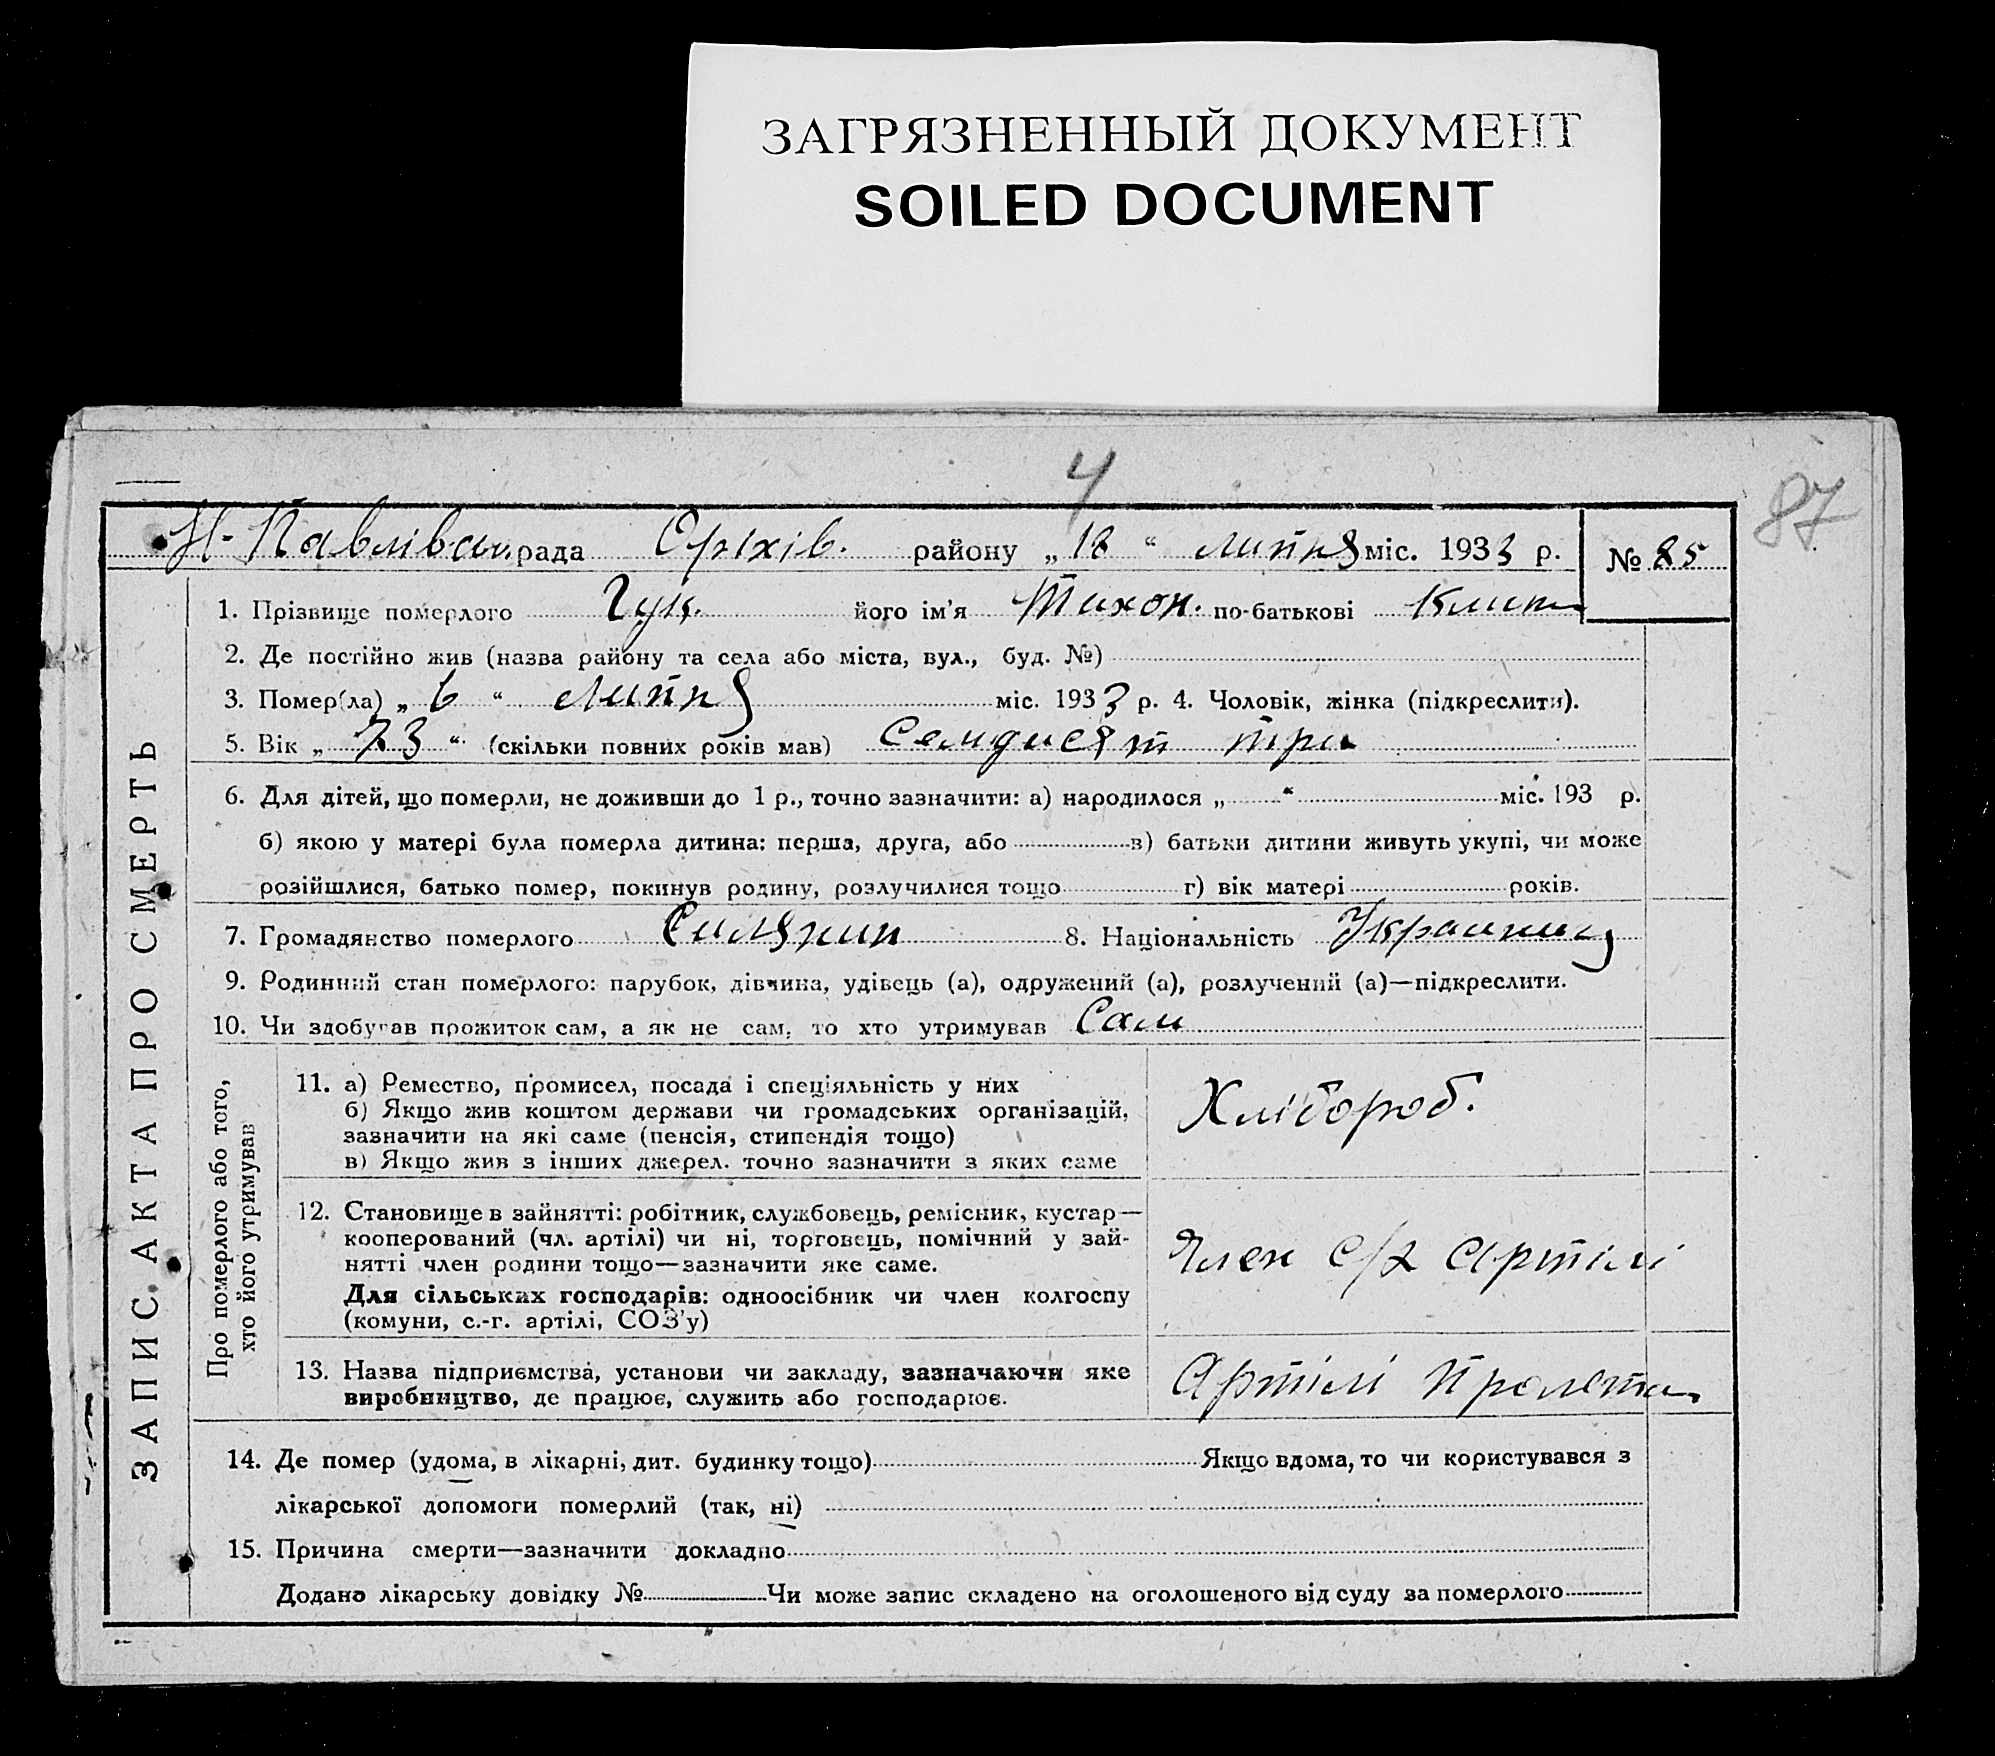 ЗАГРЯЗНЕННЫЙ ДОКУМЕНТ
SOILED DOCUMENT
4
87
Н-Павлівськ. рада Оріхів. району „18“ липня міс. 1933 р. № 85
ЗАПИС АКТА ПРО СМЕРТЬ
1. Прізвище померлого Гук. його ім'я Тихон. по-батькові
2. Де постійно жив (назва району та села або міста, вул., буд. №)
3. Помер(ла) „6“ Липня міс. 1933 р. 4. Чоловік, жінка (підкреслити).
5. Вік „73“ (скільки повних років мав) Семдисят три
6. Для дітей, що померли, не доживши до 1 р., точно зазначити: а) народилося „ “ міс. 193 р.
б) якою у матері була померла дитина: перша, друга, або в) батьки дитини живуть укупі, чи може
розійшлися, батько помер, покинув родину, розлучилися тощо г) вік матері років.
7. Громадянство померлого Силянин 8. Національність
9. Родинний стан померлого: парубок, дівчина, удівець (а), одружений (а), розлучений (а)—підкреслити.
10. Чи здобував прожиток сам, а як не сам, то хто утримував Сам
Про померлого або того,
хто його утримував
11. а) Ремество, промисел, посада і спеціяльність у них
б) Якщо жив коштом держави чи громадських організацій,
зазначити на які саме (пенсія, стипендія тощо)
в) Якщо жив з інших джерел, точно зазначити з яких саме
Хлібороб.
12. Становище в зайнятті: робітник, службовець, ремісник, кустар—
кооперований (чл. артілі) чи ні, торговець, помічний у зай-
нятті член родини тощо—зазначити яке саме.
Для сільських господарів: одноосібник чи член колгоспу
(комуни, с.-г. артілі, СОЗ'у)
Член с/г артілі
13. Назва підприємства, установи чи закладу, зазначаючи яке
виробництво, де працює, служить або господарює.
Артілі
14. Де помер (удома, в лікарні, дит. будинку тощо) Якщо вдома, то чи користувався з
лікарської допомоги померлий (так, ні)
15. Причина смерти—зазначити докладно
Додано лікарську довідку № Чи може запис складено на оголошеного від суду за померлого